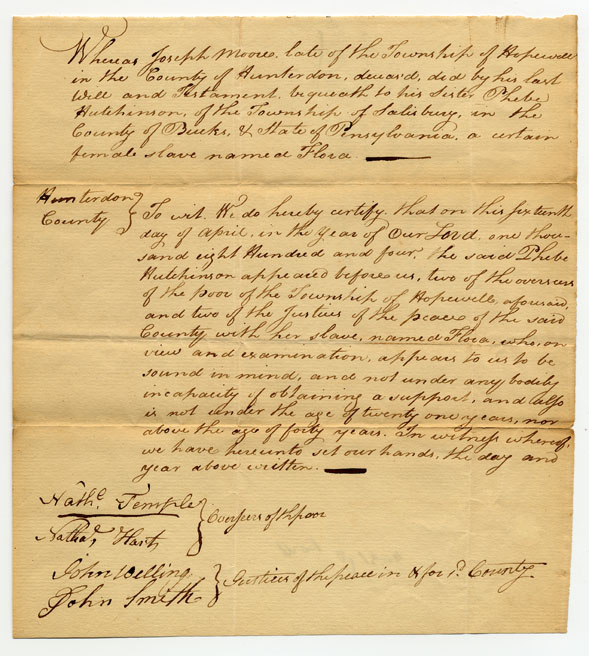 Whereas Joseph Moore, late of the Township of Hopewell
in the County of Hunterdon, deceas'd, did by his last
Will and Testament, bequeath to his Sister Phebe
Hutchinson, of the Township of Salisbury, in the
County of Bucks, & State of Pensylvania, a certain
female slave named Flora.
Hunterdon
County
To wit. We do hereby certify, that on this sixteenth
day of April, in the year of Our Lord, one thou-
sand eight Hundred and four, the said Phebe
Hutchinson appeared before us, two of the overseers
of the poor of the Township of Hopewell, aforesaid,
and two of the Justices of the peace of the said
County with her slave, named Flora, who, on
view and examination, appears to us to be
sound in mind, and not under any bodily
incapacity of obtaining a support, and also
is not under the age of twenty one years, nor
above the age of forty years. In witness whereof,
we have hereunto set our hands, the day and
year above written.
Nathl. Temple
Hart
Overseers of the poor
John Welling
John Smith
Justices of the peace in & for sd. County